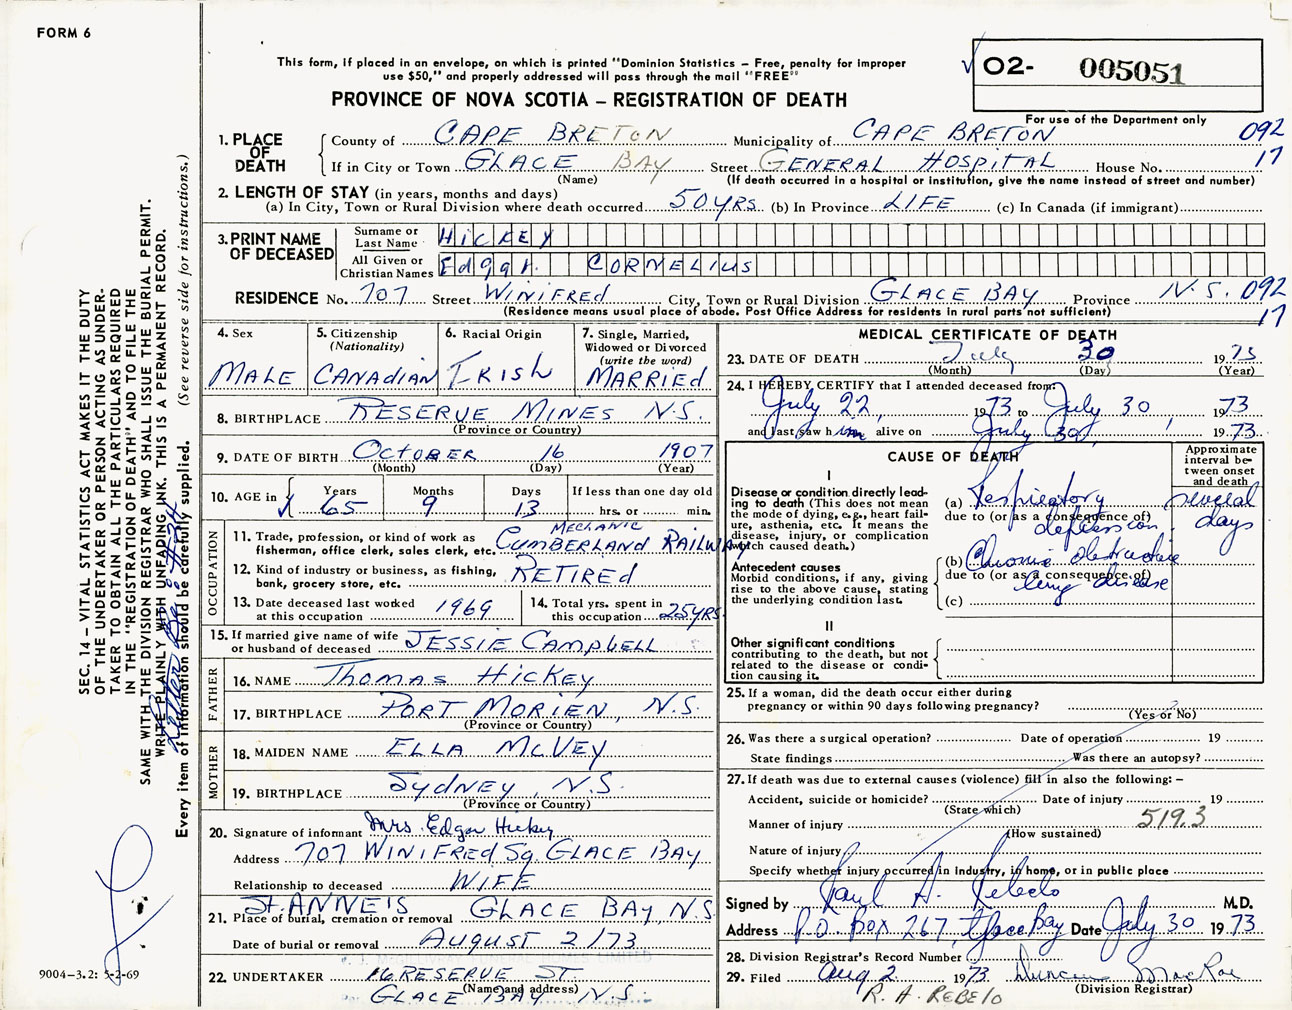 FORM 6
This form, if placed in an envelope, on which is printed "Dominion Statistics – Free, penalty for improper
use $50," and properly addressed will pass through the mail "FREE"
PROVINCE OF NOVA SCOTIA – REGISTRATION OF DEATH
O2- 005051
For use of the Department only
092
17
1. PLACE OF DEATH
County of CAPE BRETON Municipality of CAPE BRETON
If in City or Town GLACE BAY Street GENERAL HOSPITAL House No.
(Name) (If death occurred in a hospital or institution, give the name instead of street and number)
2. LENGTH OF STAY (in years, months and days)
(a) In City, Town or Rural Division where death occurred 50 YRS (b) In Province LIFE (c) In Canada (if immigrant)
3. PRINT NAME OF DECEASED
Surname or Last Name HICKEY
All Given or Christian Names Edgar CORNELIUS
RESIDENCE No. 707 Street WINIFRED City, Town or Rural Division GLACE BAY Province N.S. 092
17
(Residence means usual place of abode. Post Office Address for residents in rural parts not sufficient)
4. Sex
MALE
5. Citizenship
(Nationality)
CANADIAN
6. Racial Origin
IRISH
7. Single, Married,
Widowed or Divorced
(write the word)
MARRIED
8. BIRTHPLACE RESERVE MINES N.S.
(Province or Country)
9. DATE OF BIRTH OCTOBER 16 1907
(Month) (Day) (Year)
10. AGE in
Years Months Days If less than one day old
65 9 13 hrs. or min.
OCCUPATION
11. Trade, profession, or kind of work as
fisherman, office clerk, sales clerk, etc. MECHANIC
CUMBERLAND RAILWAY
12. Kind of industry or business, as fishing,
bank, grocery store, etc. RETIRED
13. Date deceased last worked
at this occupation 1969
14. Total yrs. spent in
this occupation 25 YRS
15. If married give name of wife
or husband of deceased JESSIE CAMPBELL
FATHER
16. NAME THOMAS HICKEY
17. BIRTHPLACE PORT MORIEN, N.S.
(Province or Country)
MOTHER
18. MAIDEN NAME ELLA McVEY
19. BIRTHPLACE SYDNEY, N.S.
(Province or Country)
20. Signature of informant Mrs. Edgar Hickey
Address 707 WINIFRED Sq. GLACE BAY
Relationship to deceased WIFE
21. Place of burial, cremation or removal St. ANNE'S GLACE BAY, N.S.
Date of burial or removal AUGUST 2/73
22. UNDERTAKER 16 RESERVE ST.
(Name and address)
GLACE BAY N.S.
MEDICAL CERTIFICATE OF DEATH
23. DATE OF DEATH July 30 1973
(Month) (Day) (Year)
24. I HEREBY CERTIFY that I attended deceased from:
July 22, 1973 to July 30, 1973
and last saw him alive on July 30, 1973.
CAUSE OF DEATH
Approximate
interval be-
tween onset
and death
I
Disease or condition directly lead-
ing to death (This does not mean
the mode of dying, e.g., heart fail-
ure, asthenia, etc. It means the
disease, injury, or complication
which caused death.)
(a) Respiratory several
due to (or as a consequence of)
depression. days
Antecedent causes
Morbid conditions, if any, giving
rise to the above cause, stating
the underlying condition last.
(b) Chronic obstructive
due to (or as a consequence of)
lung disease
(c)
II
Other significant conditions
contributing to the death, but not
related to the disease or condi-
tion causing it.
25. If a woman, did the death occur either during
pregnancy or within 90 days following pregnancy?
(Yes or No)
26. Was there a surgical operation? Date of operation 19
State findings Was there an autopsy?
27. If death was due to external causes (violence) fill in also the following: –
Accident, suicide or homicide? Date of injury 19
(State which)
Manner of injury 519.3
(How sustained)
Nature of injury
Specify whether injury occurred in industry, in home, or in public place
Signed by Raul A. Rebelo M.D.
Address P.O. Box 267, Glace Bay Date July 30 1973
28. Division Registrar's Record Number
29. Filed Aug 2 1973 Duncan MacRae
(Division Registrar)
R. A. REBELO
SEC. 14 – VITAL STATISTICS ACT MAKES IT THE DUTY
OF THE UNDERTAKER OR PERSON ACTING AS UNDER-
TAKER TO OBTAIN ALL THE PARTICULARS REQUIRED
IN THE "REGISTRATION OF DEATH" AND TO FILE THE
SAME WITH THE DIVISION REGISTRAR WHO SHALL ISSUE THE BURIAL PERMIT.
WRITE PLAINLY WITH UNFADING INK. THIS IS A PERMANENT RECORD.
Every item of information should be carefully supplied. (See reverse side for instructions.)
9004-3.2: 5-2-69